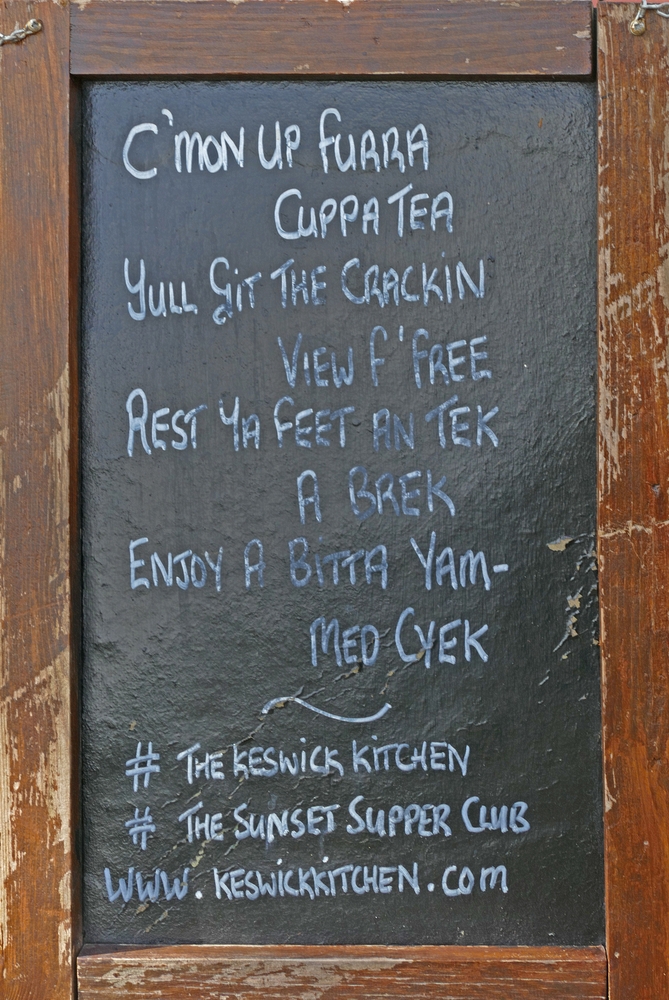 C'MON UP FURRA
CUPPA TEA
YULL GIT THE CRACKIN
VIEW F'FREE
REST YA FEET AN TEK
A BREK
ENJOY A BITTA YAM-
MED CYEK
# THE KESWICK KITCHEN
# THE SUNSET SUPPER CLUB
WWW.KESWICKKITCHEN.COM